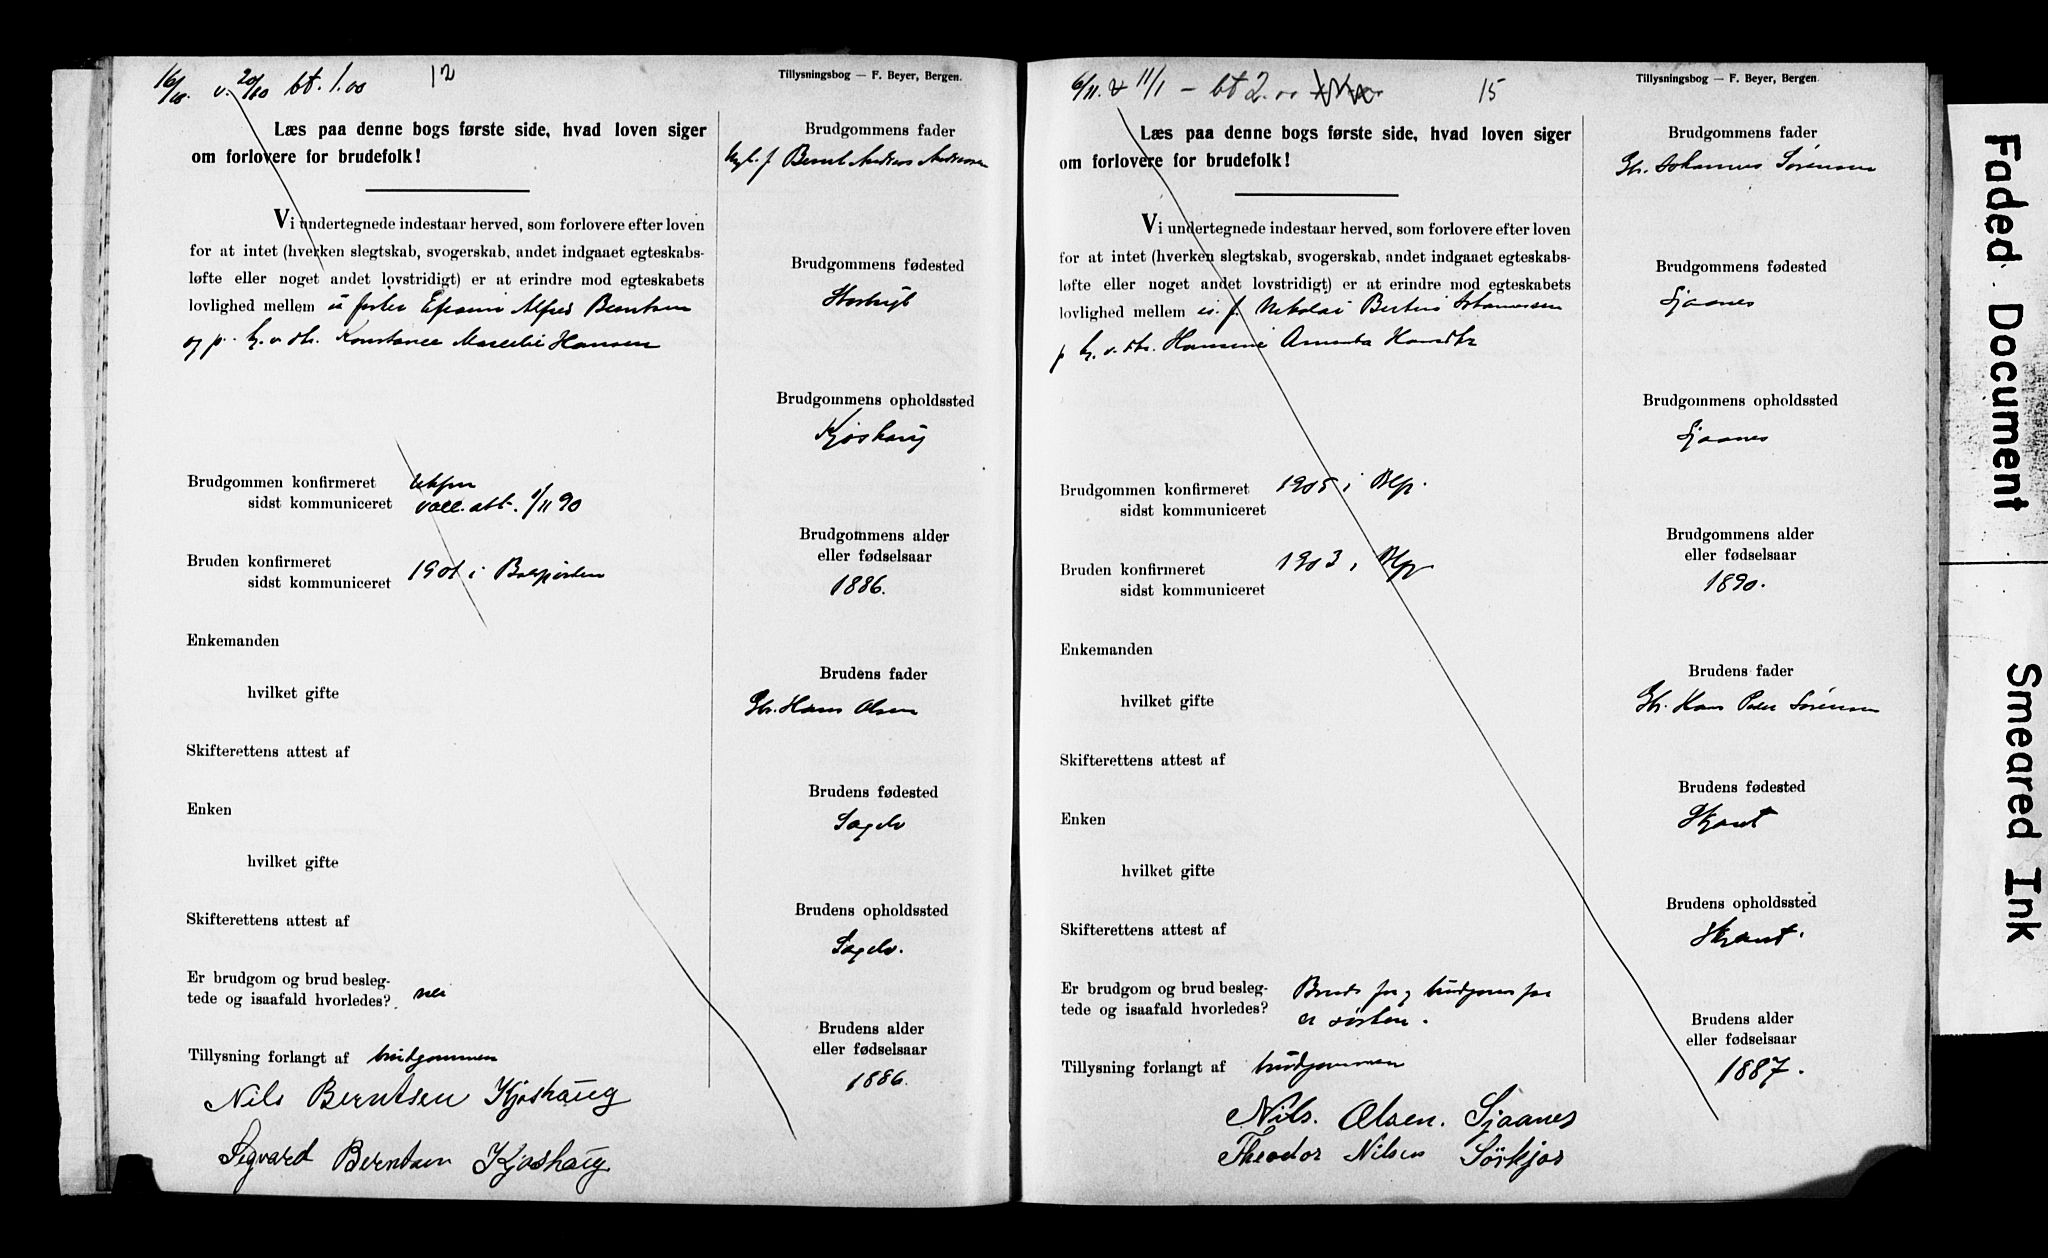 16/10. v. 20/10 bt. 1.00 12
Tillysningsbog — F. Beyer, Bergen.
Læs paa denne bogs første side, hvad loven siger
om forlovere for brudefolk!
Vi undertegnede indestaar herved, som forlovere efter loven
for at intet (hverken slegtskab, svogerskab, andet indgaaet egteskabs-
løfte eller noget andet lovstridigt) er at erindre mod egteskabets
lovlighed mellem Alfred Berntsen
og p. Hansen
Brudgommen konfirmeret
sidst kommuniceret vacc. att. 1/11 90
Bruden konfirmeret
sidst kommuniceret 1901 i
Enkemanden
hvilket gifte
Skifterettens attest af
Enken
hvilket gifte
Skifterettens attest af
Er brudgom og brud besleg-
tede og isaafald hvorledes? nei
Tillysning forlangt af brudgommen
Nils Berntsen Kjoshaug
Sigvard Berntsen Kjoshaug
Brudgommens fader
Bernt Andreas Andreassen
Brudgommens fødested
Brudgommens opholdssted
Kjoshaug
Brudgommens alder
eller fødselsaar
1886.
Brudens fader
Gbr. Hans Olsen
Brudens fødested
Sagelv
Brudens opholdssted
Sagelv.
Brudens alder
eller fødselsaar
1886.
6/11. 11/1 — bt 2.00 15
Tillysningsbog — F. Beyer, Bergen.
Læs paa denne bogs første side, hvad loven siger
om forlovere for brudefolk!
Vi undertegnede indestaar herved, som forlovere efter loven
for at intet (hverken slegtskab, svogerskab, andet indgaaet egteskabs-
løfte eller noget andet lovstridigt) er at erindre mod egteskabets
lovlighed mellem Nikolai Bertius Johannessen
p. Hansine Amanda
Brudgommen konfirmeret 1905 i Blfj.
sidst kommuniceret
Bruden konfirmeret 1903 i Blfj.
sidst kommuniceret
Enkemanden
hvilket gifte
Skifterettens attest af
Enken
hvilket gifte
Skifterettens attest af
Er brudgom og brud besleg-
tede og isaafald hvorledes? Bruds far og brudgoms far
er
Tillysning forlangt af brudgommen
Nils. Olsen. Sjaanes
Theodor Nilsen Sörkjos
Brudgommens fader
Gbr. Johannes Sørensen
Brudgommens fødested
Sjaanes
Brudgommens opholdssted
Sjaanes
Brudgommens alder
eller fødselsaar
1890.
Brudens fader
Gbr. Hans Peder Sørensen
Brudens fødested
Brudens opholdssted
Brudens alder
eller fødselsaar
1887.
Faded Document
Smeared Ink